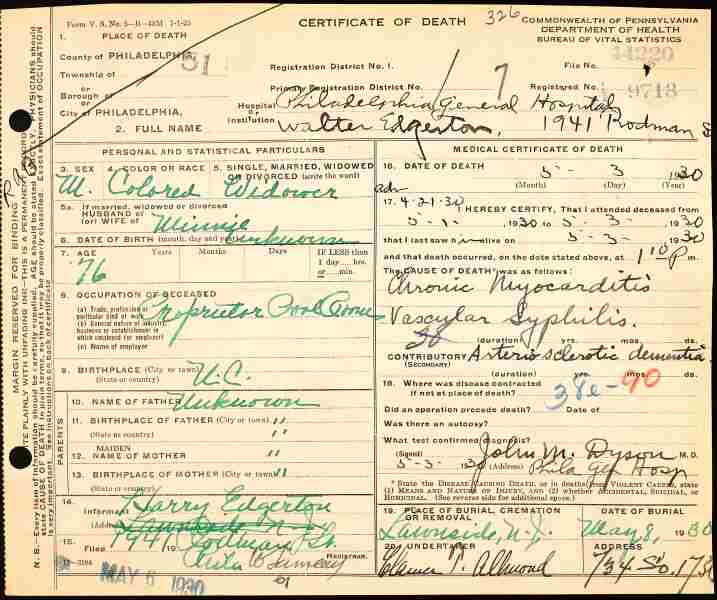 Form V. S. No. 5—B—45M 7-1-25
CERTIFICATE OF DEATH
326
COMMONWEALTH OF PENNSYLVANIA
DEPARTMENT OF HEALTH
BUREAU OF VITAL STATISTICS
1. PLACE OF DEATH
County of PHILADELPHIA,
51
Township of
or
Borough of
or
City of PHILADELPHIA,
Registration District No. 1.
File No.
44220
Primary Registration District No.
17
Registered No.
9718
Hospital or Institution
Philadelphia General Hospital
2. FULL NAME
Walter Edgerton, 1941 Rodman S
MARGIN RESERVED FOR BINDING
PERSONAL AND STATISTICAL PARTICULARS
3. SEX
4. COLOR OR RACE
5. SINGLE, MARRIED, WIDOWED
OR DIVORCED (write the word)
M. Colored Widower
5a. If married, widowed or divorced
HUSBAND of
(or) WIFE of
Minnie
6. DATE OF BIRTH (month, day and year)
unknown
7. AGE
Years
Months
Days
IF LESS than
1 day .... hrs.
or .... min.
76
8. OCCUPATION OF DECEASED
(a) Trade, profession or
particular kind of work
Proprietor Pool Room
(b) General nature of industry,
business or establishment in
which employed (or employer)
(c) Name of employer
9. BIRTHPLACE (City or town)
(State or country)
N.C.
PARENTS
10. NAME OF FATHER
Unknown
11. BIRTHPLACE OF FATHER (City or town)
"
(State or country)
12. MAIDEN
NAME OF MOTHER
"
13. BIRTHPLACE OF MOTHER (City or town)
"
(State or country)
14.
Informant
Harry Edgerton
(Address)
Lawnside N.J.
1941 Rodman St.
15.
Filed
19
Phila
Registrar.
12-3184
MAY 6 1930
MEDICAL CERTIFICATE OF DEATH
16. DATE OF DEATH
5 - 3 1930
(Month) (Day) (Year)
adm
17. 4-21-30
I HEREBY CERTIFY, That I attended deceased from
5-1-, 1930 to 5-3-, 1930
that I last saw him alive on 5-3-, 1930
and that death occurred, on the date stated above, at 1:10 P m.
The CAUSE OF DEATH* was as follows:
Chronic Myocarditis
Vascular Syphilis.
(duration) yrs. mos. ds.
CONTRIBUTORY
(SECONDARY)
Arteriosclerotic dementia
(duration) yrs. mos. ds
18. Where was disease contracted
if not at place of death?
38e-90
Did an operation precede death?
Date of
Was there an autopsy?
What test confirmed diagnosis?
(Signed)
John M. Dyson M.D.
5-3-1930 (Address) Phila Gen Hosp
* State the DISEASE CAUSING DEATH, or in deaths from VIOLENT CAUSES, state
(1) MEANS AND NATURE OF INJURY, and (2) whether ACCIDENTAL, SUICIDAL, or
HOMICIDAL. (See reverse side for additional space).
19. PLACE OF BURIAL, CREMATION
OR REMOVAL
DATE OF BURIAL
Lawnside, N.J.
May 8, 1930
20. UNDERTAKER
ADDRESS
Allmond
734 So. 17